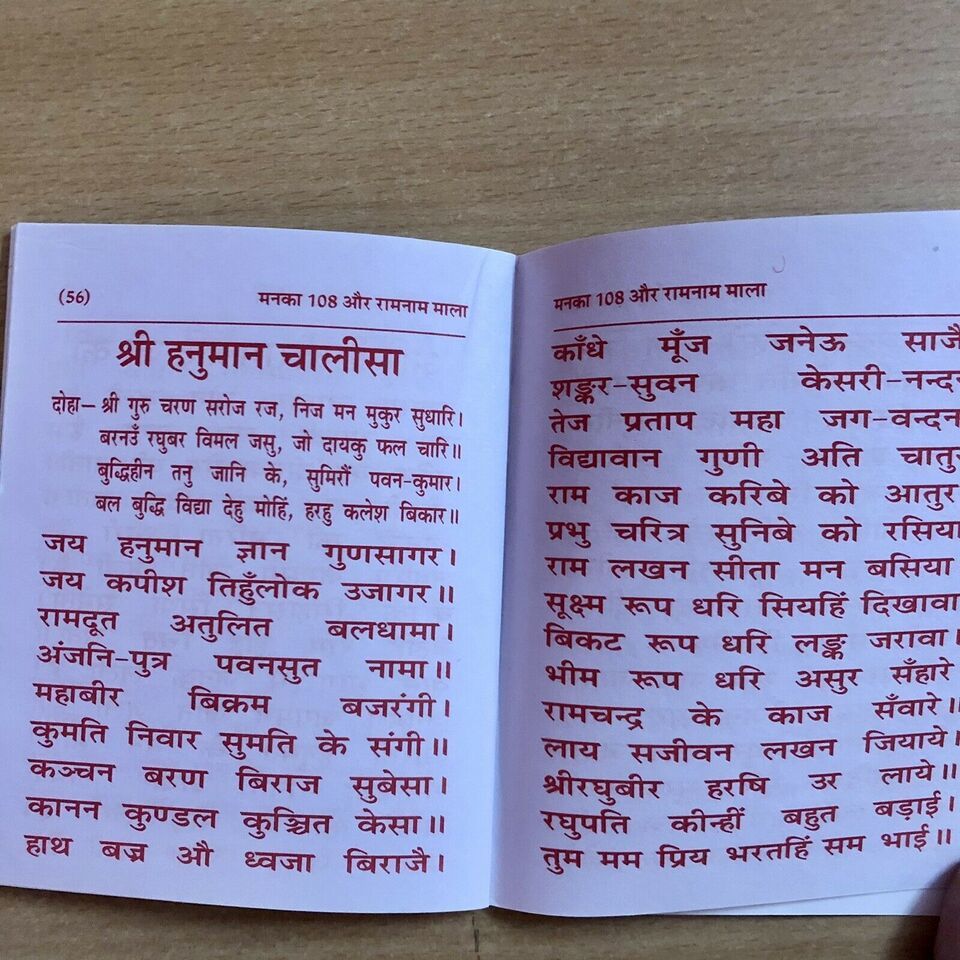 (56) मनका 108 और रामनाम माला
श्री हनुमान चालीसा
दोहा– श्री गुरु चरण सरोज रज, निज मन मुकुर सुधारि।
बरनउँ रघुबर विमल जसु, जो दायकु फल चारि॥
बुद्धिहीन तनु जानि के, सुमिरौं पवन-कुमार।
बल बुद्धि विद्या देहु मोहिं, हरहु कलेश बिकार॥
जय हनुमान ज्ञान गुणसागर।
जय कपीश तिहुँलोक उजागर॥
रामदूत अतुलित बलधामा।
अंजनि-पुत्र पवनसुत नामा॥
महाबीर बिक्रम बजरंगी।
कुमति निवार सुमति के संगी॥
कञ्चन बरण बिराज सुबेसा।
कानन कुण्डल कुञ्चित केसा॥
हाथ बज्र औ ध्वजा बिराजै।
मनका 108 और रामनाम माला
काँधे मूँज जनेऊ साजै
शङ्कर-सुवन केसरी-नन्दन
तेज प्रताप महा जग-वन्दन
विद्यावान गुणी अति चातुर
राम काज करिबे को आतुर
प्रभु चरित्र सुनिबे को रसिया
राम लखन सीता मन बसिया
सूक्ष्म रूप धरि सियहिं दिखावा
बिकट रूप धरि लङ्क जरावा।
भीम रूप धरि असुर सँहारे
रामचन्द्र के काज सँवारे॥
लाय सजीवन लखन जियाये।
श्रीरघुबीर हरषि उर लाये॥
रघुपति कीन्हीं बहुत बड़ाई।
तुम मम प्रिय भरतहिं सम भाई॥